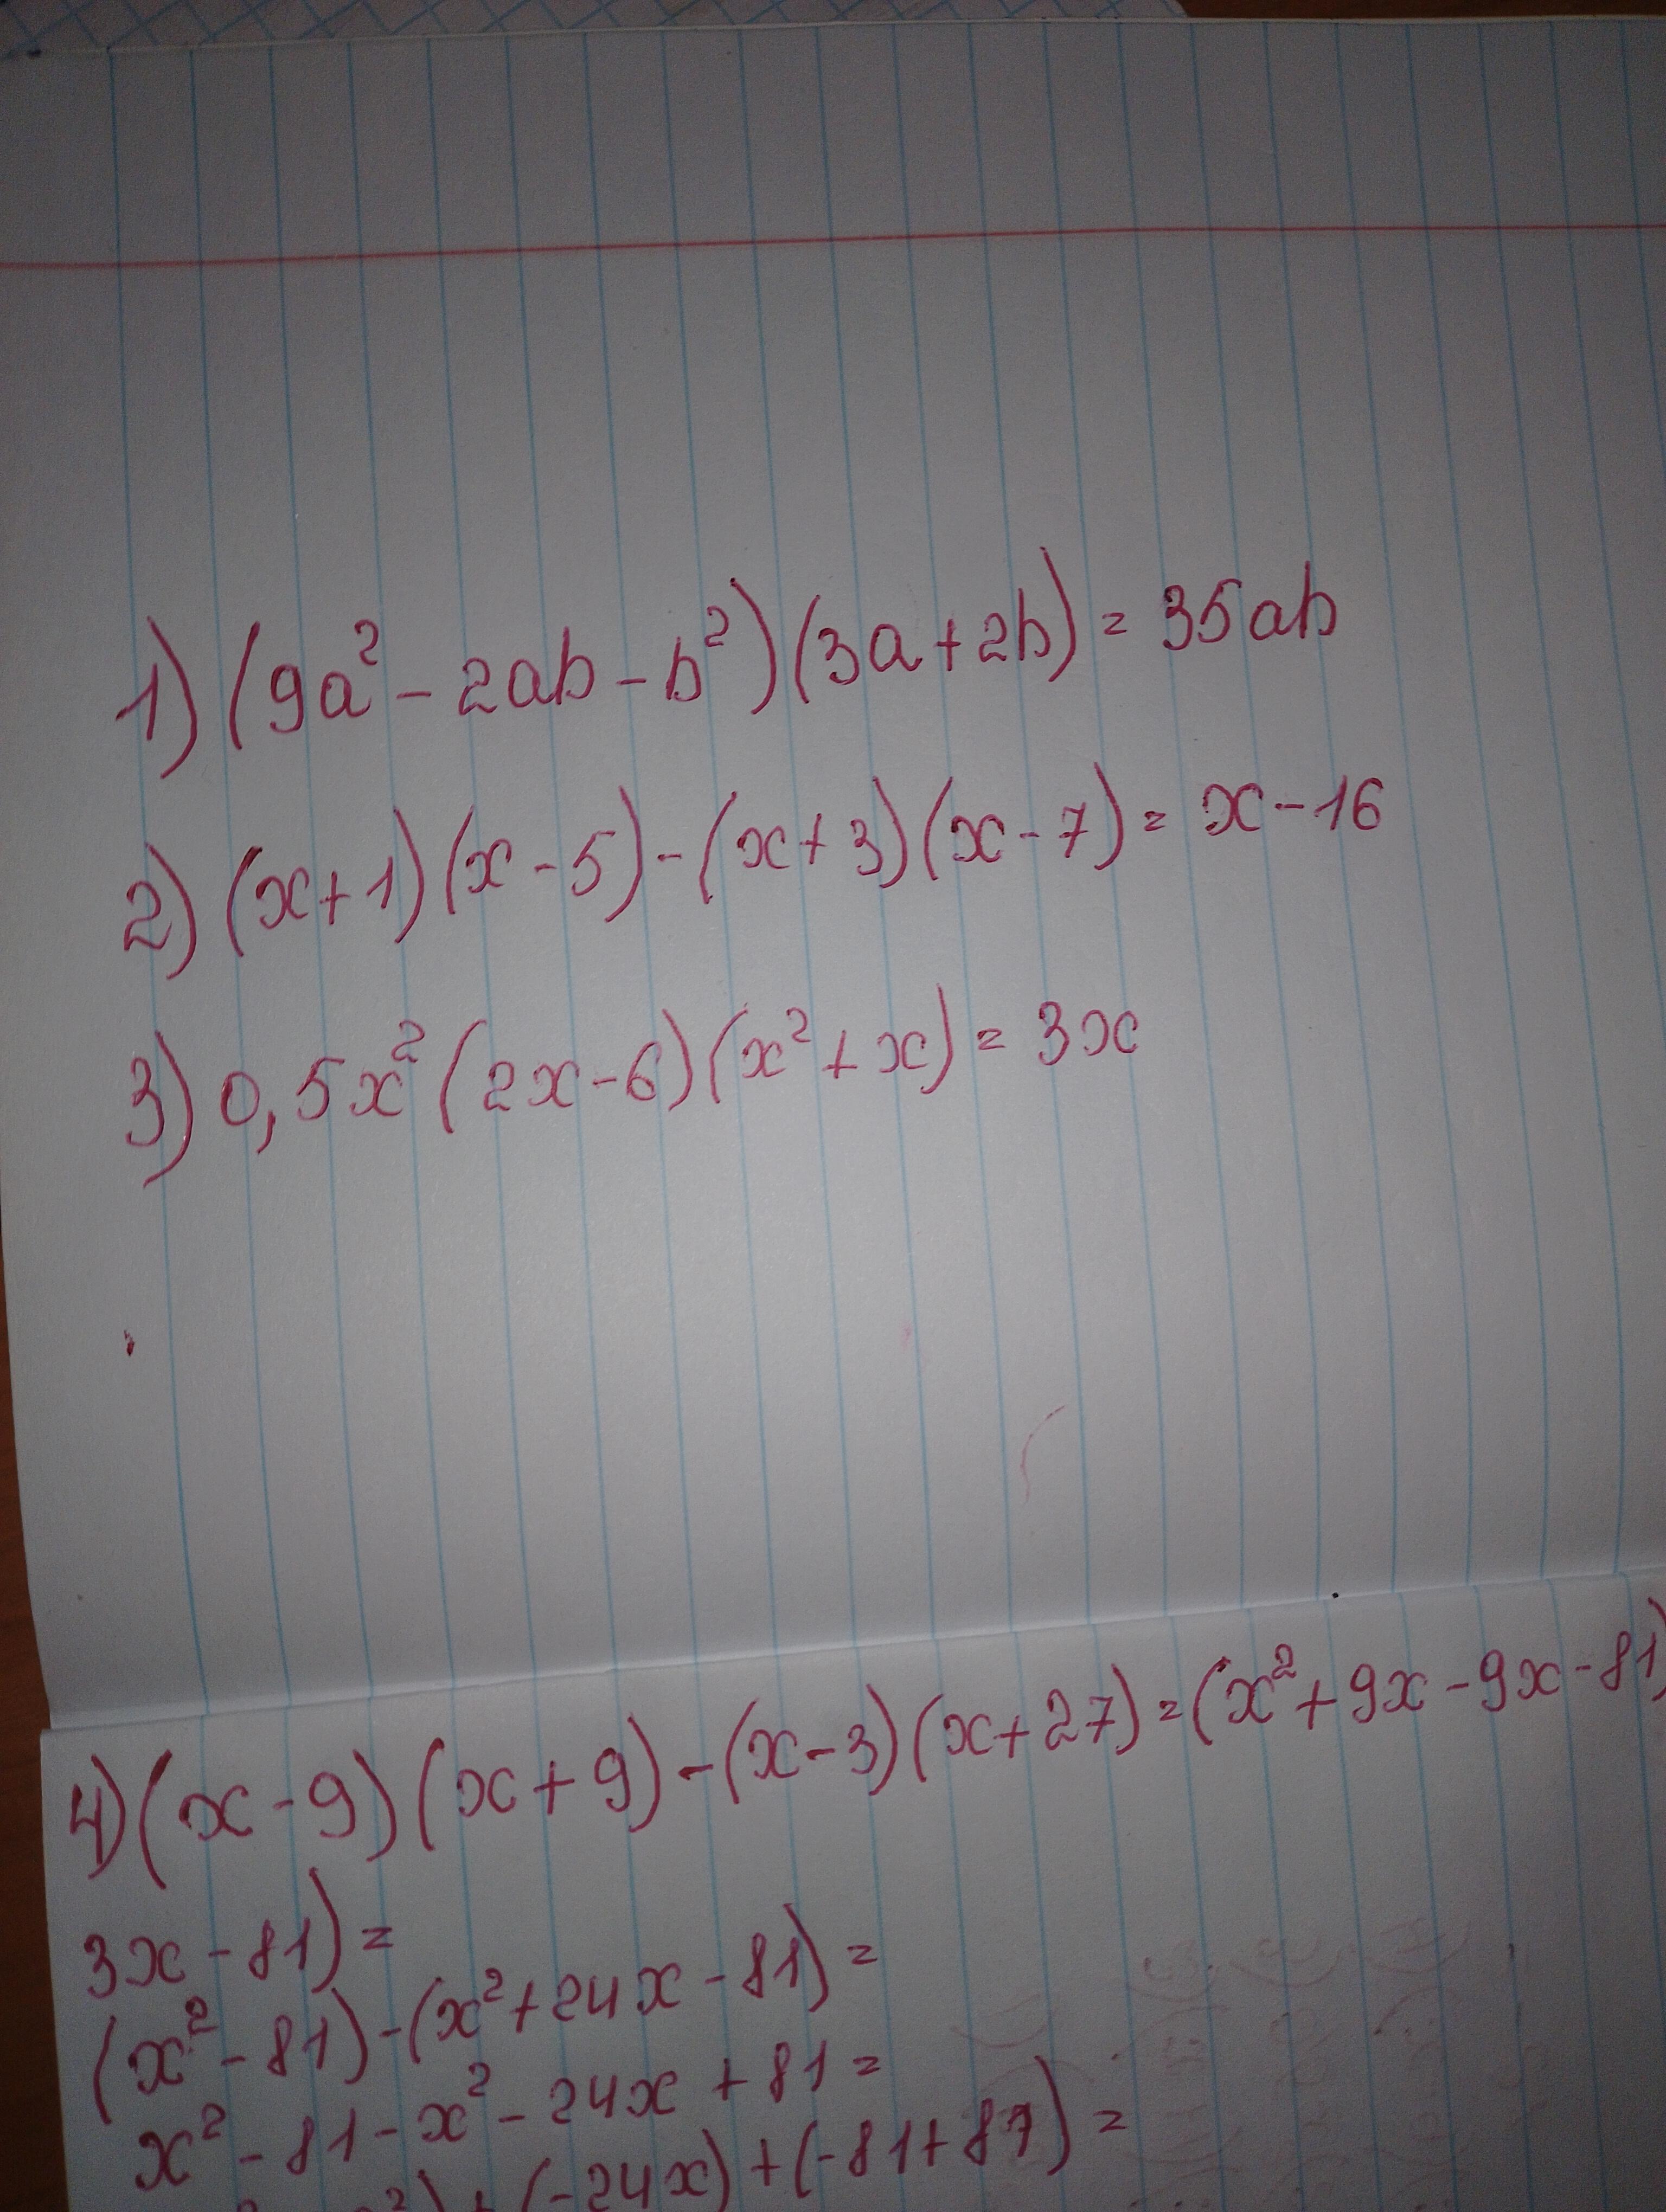 1) (9a² - 2ab - b²)(3a + 2b) = 35ab
2) (x+1)(x-5)-(x+3)(x-7) = x-16
3) 0,5x²(2x-6)(x²+x) = 3x
4) (x-9)(x+9)-(x-3)(x+27)=(x²+9x-9x-81)
3x-81)=
(x²-81)-(x²+24x-81)=
x²-81-x²-24x+81=
²)+(-24x)+(-81+81)=